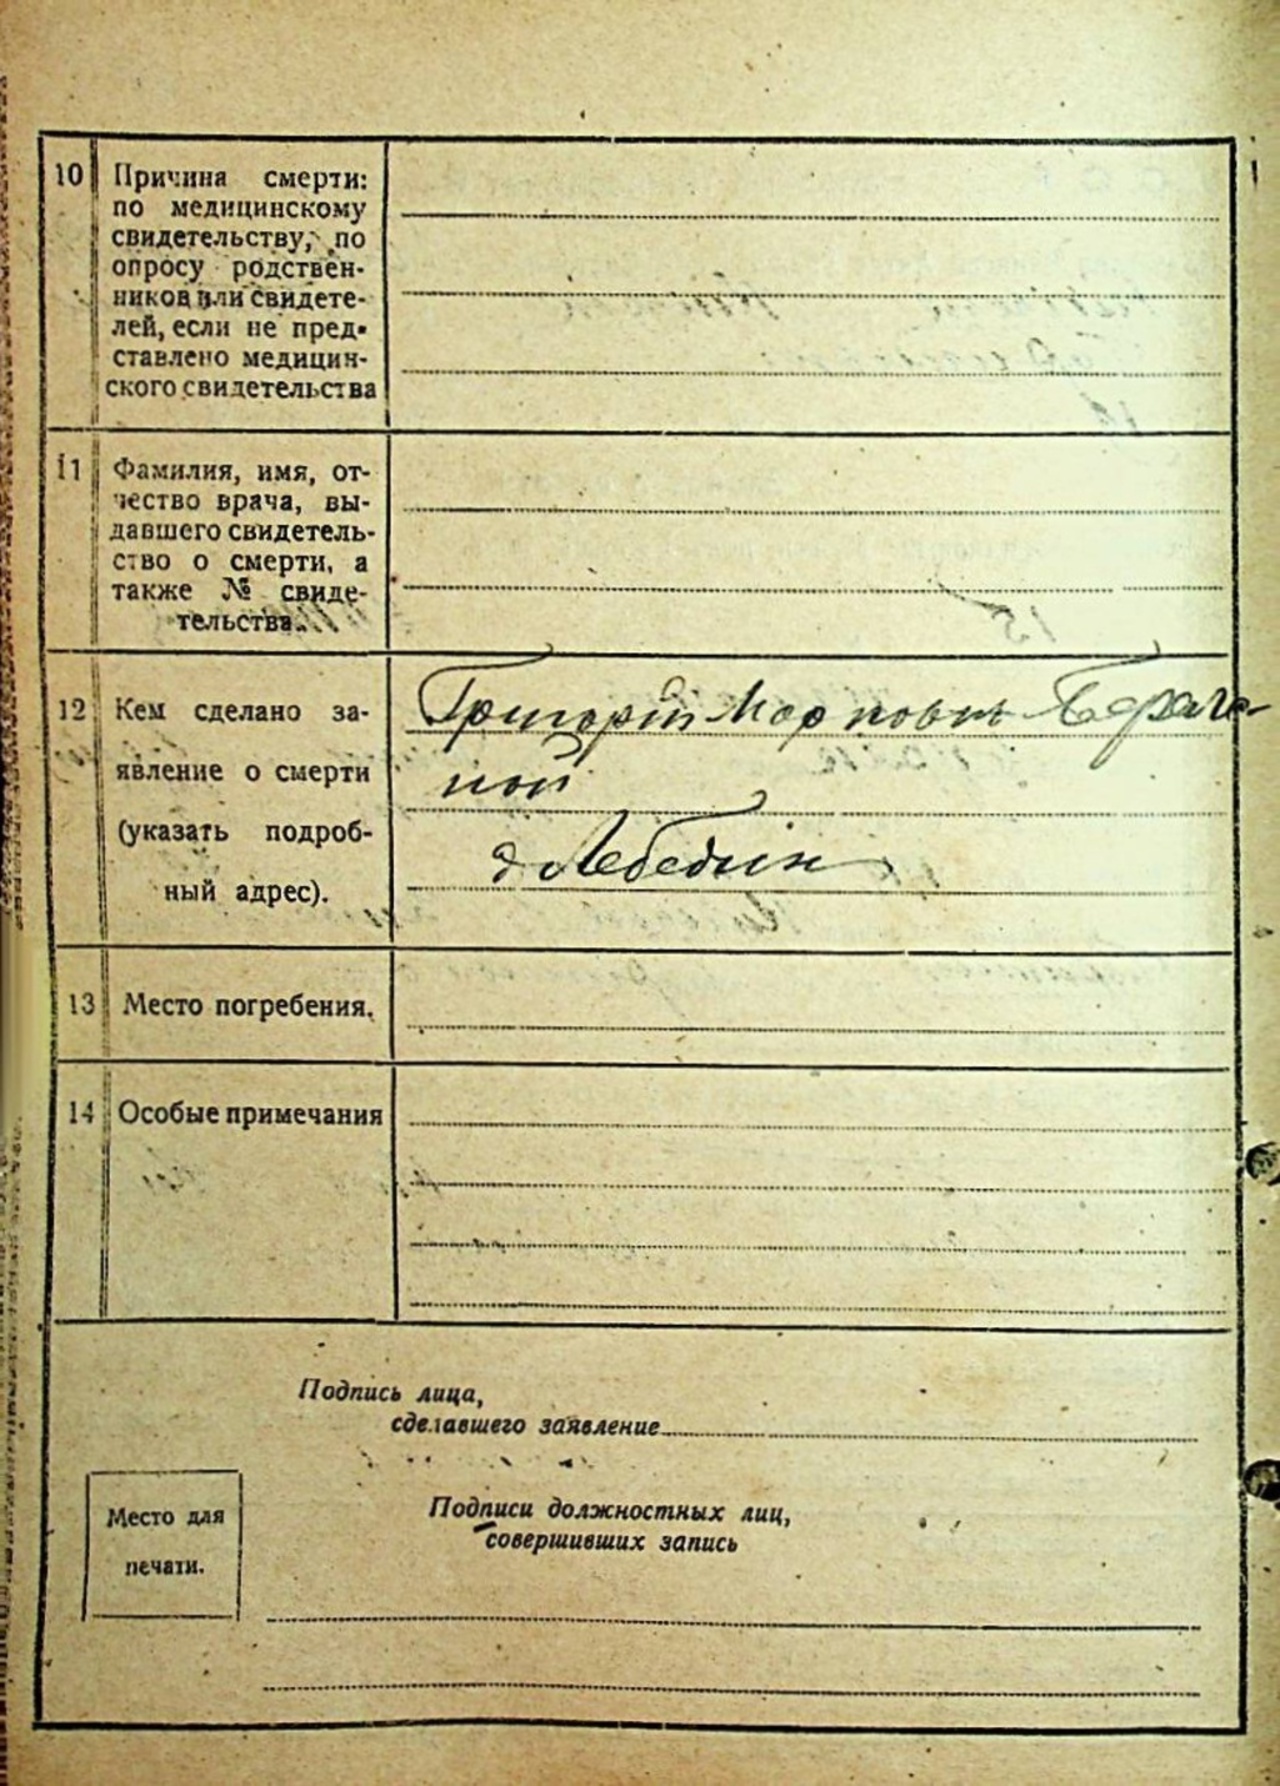 10 Причина смерти:
по медицинскому
свидетельству, по
опросу родствен-
ников или свидете-
лей, если не пред-
ставлено медицин-
ского свидетельства
11 Фамилия, имя, от-
чество врача, вы-
давшего свидетель-
ство о смерти, а
также № свиде-
тельства..
12 Кем сделано за-
явление о смерти
(указать подроб-
ный адрес).
Григорій
д Лебедин
13 Место погребения.
14 Особые примечания
Подпись лица,
сделавшего заявление
Место для
печати.
Подписи должностных лиц,
совершивших запись